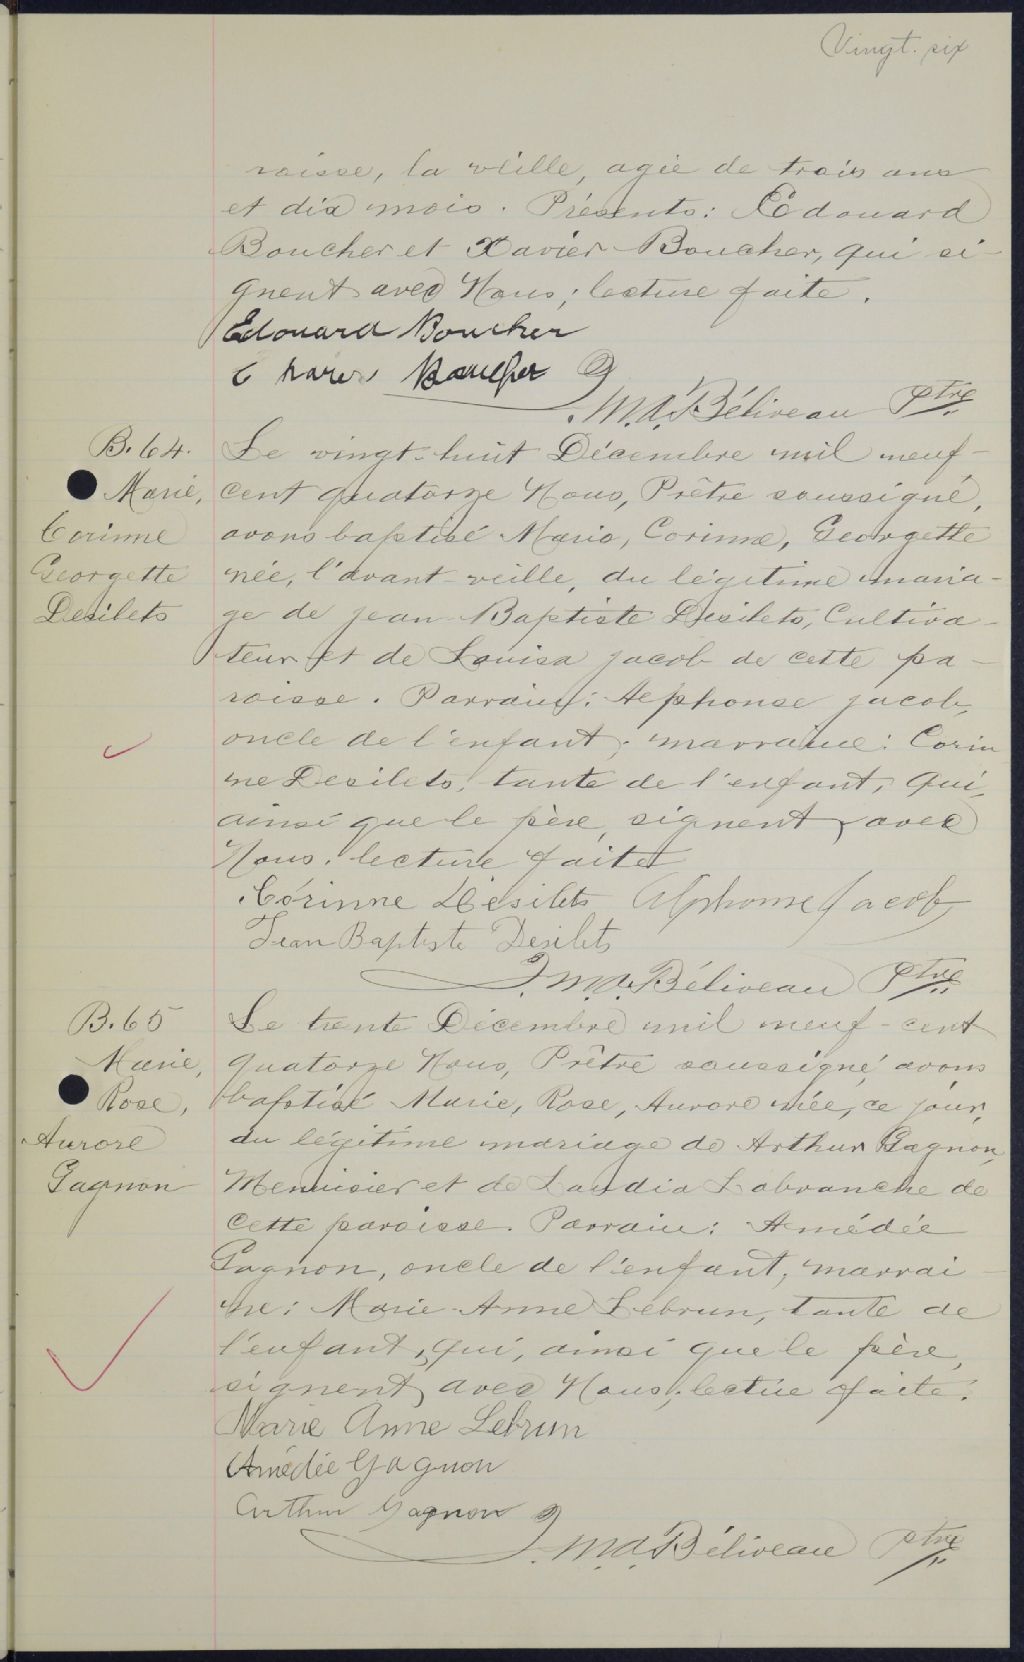 Vingt-six
roisse, la veille, agée de trois ans
et dix mois. Présents: Edouard
Boucher et Xavier Boucher, qui si-
gnent avec Nous; lecture faite.
Edouard Boucher
Boucher
J. M. A. Béliveau Ptre
B. 64.
Marie,
Corinne
Georgette
Desilets
Le vingt-huit Décembre mil neuf-
cent quatorze Nous, Prêtre soussigné,
avons baptisé Marie, Corinne, Georgette
née, l'avant-veille, du légitime maria-
ge de Jean-Baptiste Desilets, Cultiva-
teur et de Louisa Jacob de cette pa-
roisse. Parrain: Alphonse Jacob,
oncle de l'enfant; marraine: Corin
ne Desilets, tante de l'enfant, qui,
ainsi que le père, signent avec
Nous; lecture faite
Corinne Désilets Alphonse Jacob
Jean Baptiste Desilets
J. M. A. Béliveau Ptre
B. 65
Marie,
Rose,
Aurore
Gagnon
Le trente Décembre mil neuf-cent
quatorze Nous, Prêtre soussigné, avons
baptisé Marie, Rose, Aurore née, ce jour,
du légitime mariage de Arthur Gagnon,
Menuisier et de Laudia Labranche de
cette paroisse. Parrain: Amédée
Gagnon, oncle de l'enfant; marrai-
ne: Marie-Anne Lebrun, tante de
l'enfant, qui, ainsi que le père,
signent avec Nous; lectue faite.
Marie Anne Lebrun
Amédée Gagnon
Arthur Gagnon
J. M. A. Béliveau Ptre